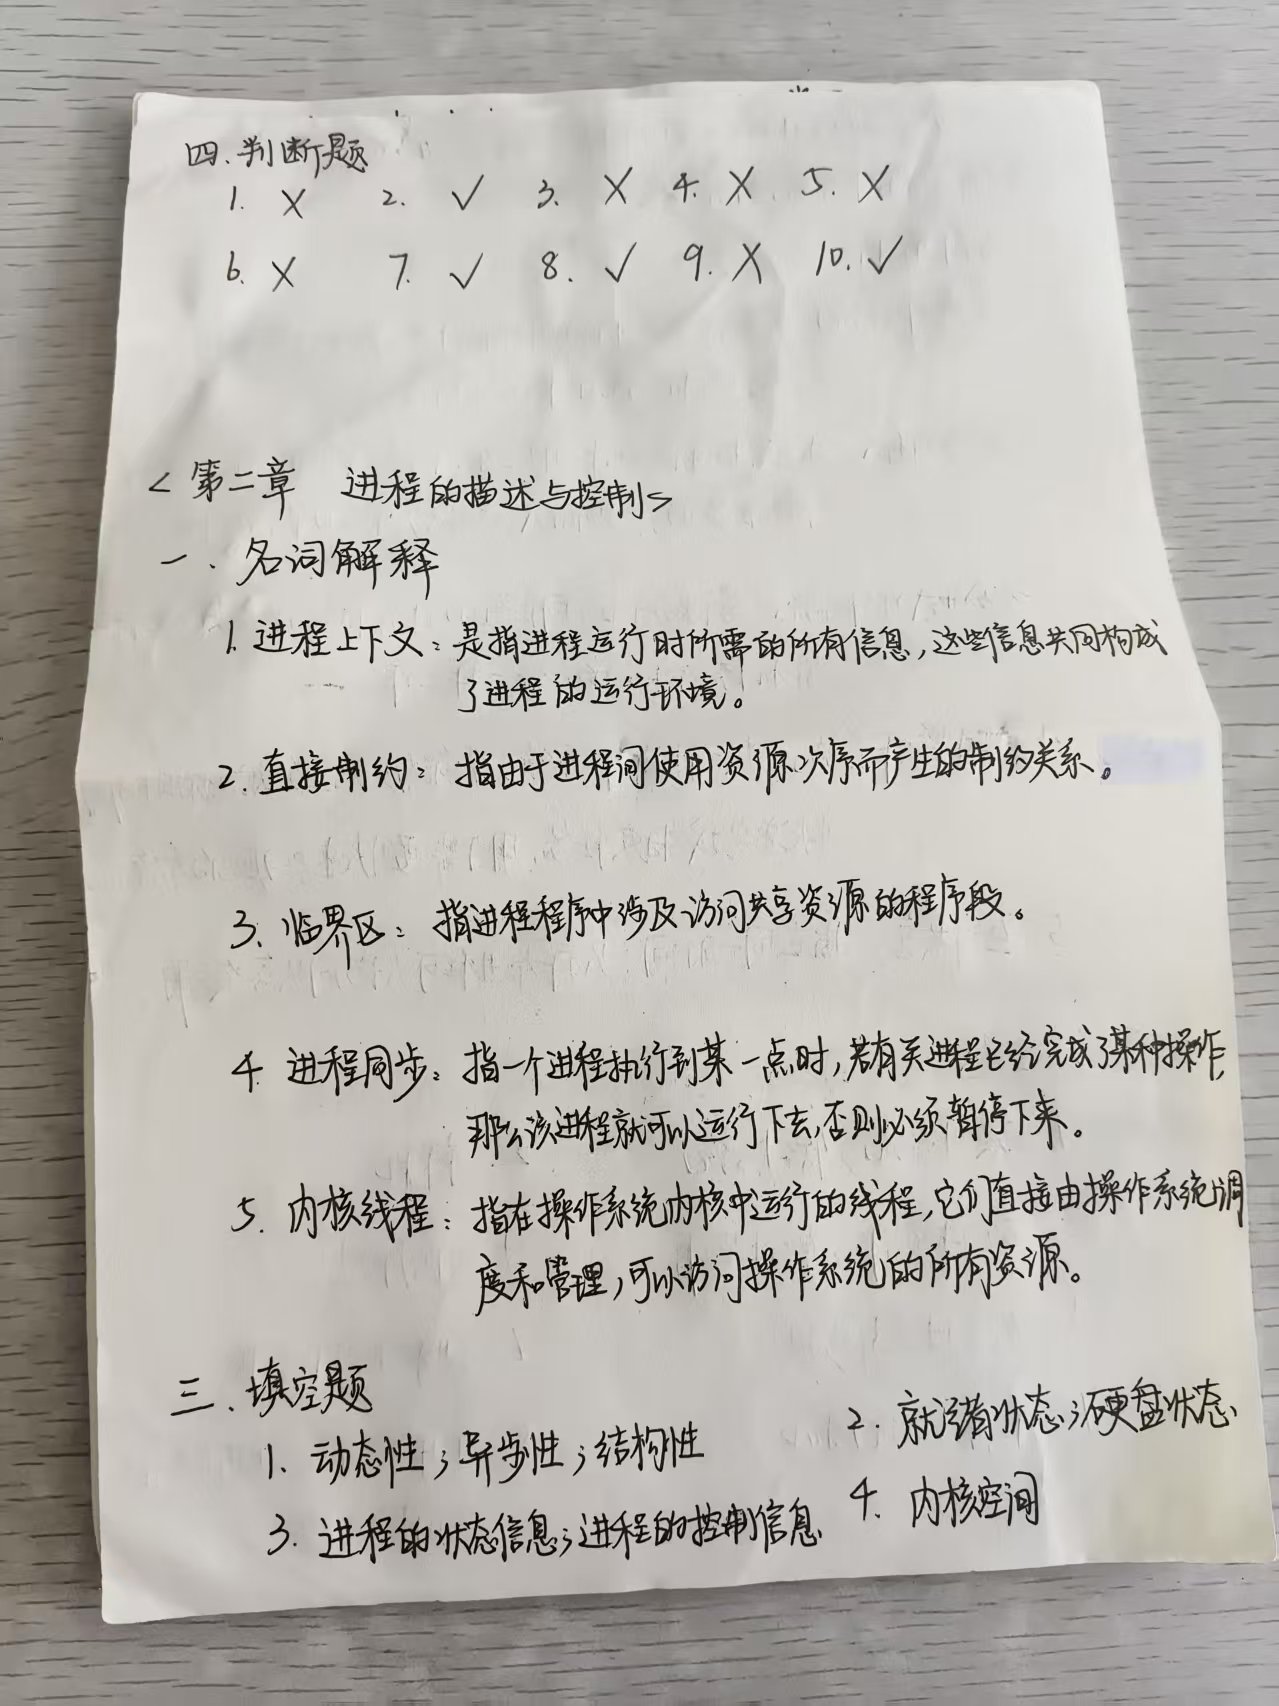 四.判断题
1. X 2. ✓ 3. X 4. X 5. X
6. X 7. ✓ 8. ✓ 9. X 10. ✓
<第二章 进程的描述与控制>
一、名词解释
1. 进程上下文：是指进程运行时所需的所有信息,这些信息共同构成
了进程的运行环境。
2. 直接制约：指由于进程间使用资源次序而产生的制约关系。
3、临界区：指进程程序中涉及访问共享资源的程序段。
4. 进程同步：指一个进程执行到某一点时,若有关进程已经完成了某种操作,
那么该进程就可以运行下去,否则必须暂停下来。
5. 内核线程：指在操作系统内核中运行的线程,它们直接由操作系统调
度和管理,可以访问操作系统的所有资源。
三、填空题
1. 动态性;异步性;结构性
2. 就绪状态;硬盘状态
3. 进程的状态信息;进程的控制信息
4. 内核空间